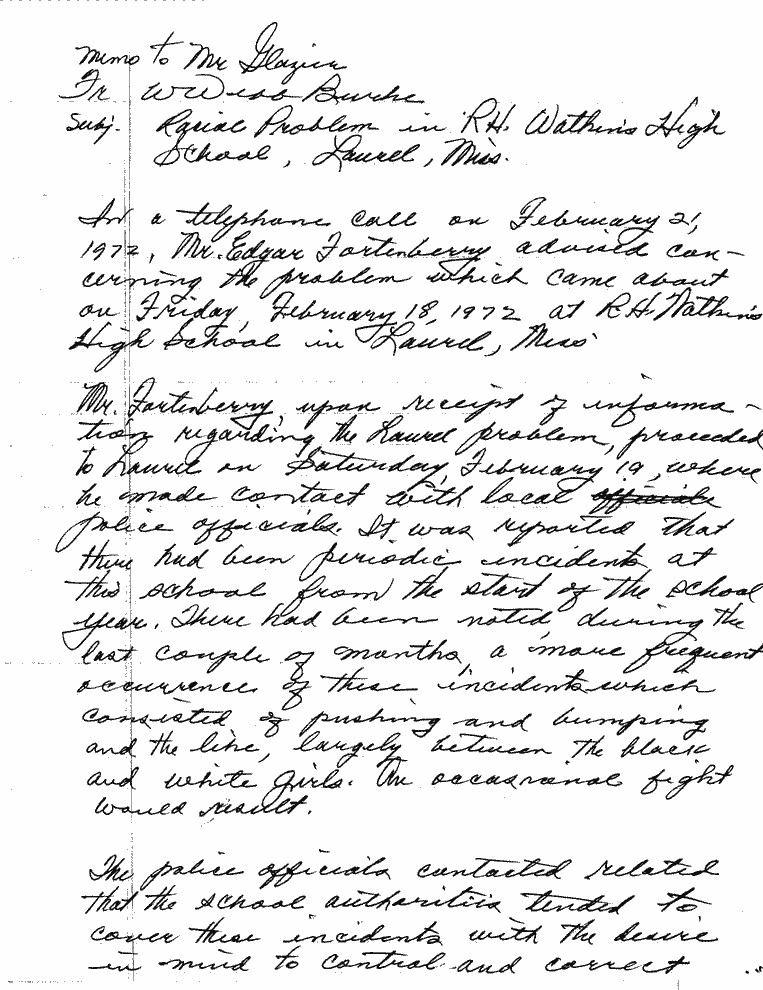 Memo to Mr Glazier
Fr W Webb Burke
Subj. Racial Problem in R.H. Watkins High
School, Laurel, Miss.
In a telephone call on February 21,
1972, Mr. Edgar Fortenberry advised con-
cerning the problem which came about
on Friday, February 18, 1972 at R.H. Watkins
High School in Laurel, Miss
Mr. Fortenberry, upon receipt of informa-
tion regarding the Laurel problem, proceeded
to Laurel on Saturday, February 19, where
he made contact with local officials
police officials. It was reported that
there had been periodic incidents at
this school from the start of the school
year. There had been noted, during the
last couple of months, a more frequent
occurrence of these incidents which
consisted of pushing and bumping
and the like, largely between the black
and white girls. An occasional fight
would result.
The police officials contacted related
that the school authorities tended to
cover these incidents with the desire
in mind to control and correct